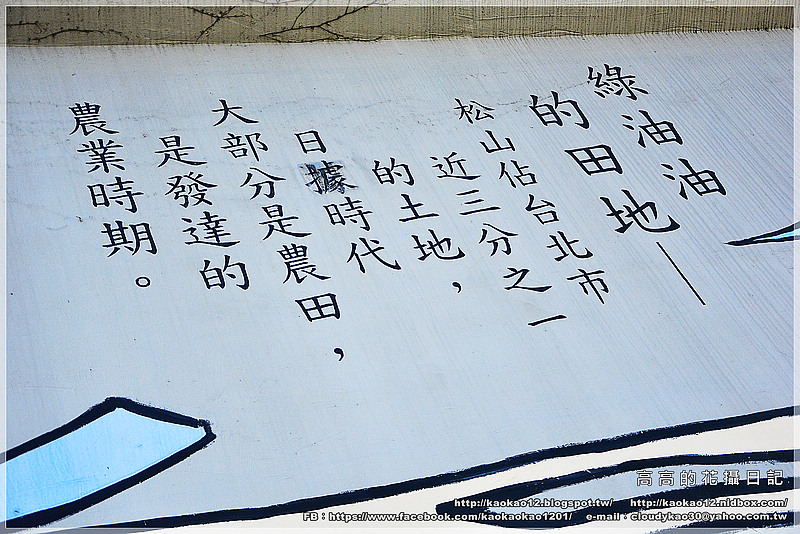 綠油油
的田地—
松山佔台北市
近三分之一
的土地，
日據時代
大部分是農田，
是發達的
農業時期。
高高的花攝日記
http://kaokao12.blogspot.tw/ http://kaokao12.nidbox.com/
FB：https://www.facebook.com/kaokaokao1201/ e-mail：cloudykao30@yahoo.com.tw